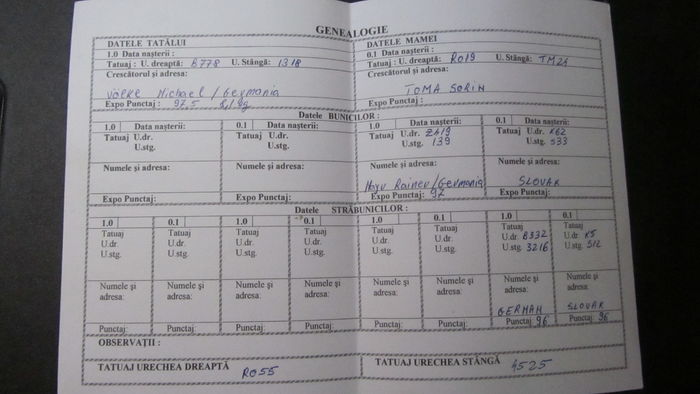 GENEALOGIE
DATELE TATĂLUI
1.0 Data naşterii :
Tatuaj : U. dreaptă: B778 U. Stângă: 1318
Crescătorul şi adresa:
Michael / Germania
Expo Punctaj : 97,5
DATELE MAMEI
0.1 Data naşterii :
Tatuaj : U. dreaptă: RO19 U. Stângă: TM24
Crescătorul şi adresa:
TOMA SORIN
Expo Punctaj :
Datele BUNICILOR :
1.0 Data naşterii:
Tatuaj U.dr.
U.stg.
Numele şi adresa:
Expo Punctaj:
0.1 Data naşterii:
Tatuaj U.dr.
U.stg.
Numele şi adresa:
Expo Punctaj:
1.0 Data naşterii:
Tatuaj U.dr. Z419
U.stg. 139
Numele şi adresa:
Rainer/Germania
Expo Punctaj: 97
0.1 Data naşterii:
Tatuaj U.dr. K62
U.stg. 533
Numele şi adresa:
SLOVAK
Expo Punctaj:
Datele STRĂBUNICILOR :
1.0 0.1 1.0 0.1 1.0 0.1 1.0 0.1
Tatuaj Tatuaj Tatuaj Tatuaj Tatuaj Tatuaj Tatuaj Tatuaj
U.dr. U.dr. U.dr. U.dr. U.dr. U.dr. U.dr. B332 U.dr. K5
U.stg. U.stg. U.stg. U.stg. U.stg. U.stg. U.stg. 3216 U.stg. 512
Numele şi Numele şi Numele şi Numele şi Numele şi Numele şi Numele şi Numele şi
adresa: adresa: adresa: adresa: adresa: adresa: adresa: adresa:
GERMAN SLOVAK
Punctaj: Punctaj: Punctaj: Punctaj: Punctaj: Punctaj: Punctaj 96 Punctaj: 96
OBSERVAŢII :
TATUAJ URECHEA DREAPTĂ RO55
TATUAJ URECHEA STÂNGĂ 4525